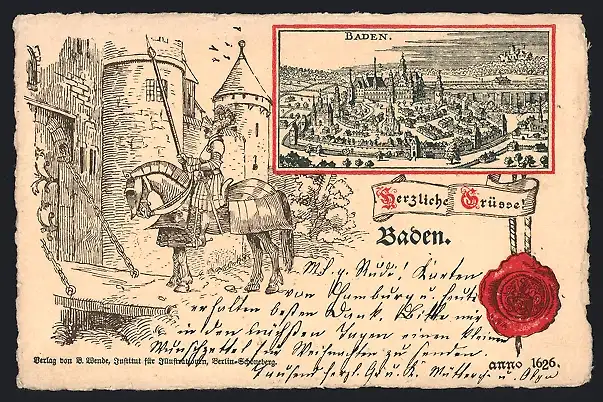 BADEN.
Herzliche Grüsse!
Baden.
M. g. Rudi! Karten
von Hamburg u. heute
erhalten besten Dank. Bitte mir
in den nächsten Tagen einen kleinen
Wunschzettel für Weihnachten zu senden.
Tausend herzl. Gr. u. K. Mutterch. u. Olga
Verlag von B. Wende, Institut für Illustrationen, Berlin-Schöneberg.
anno 1626.